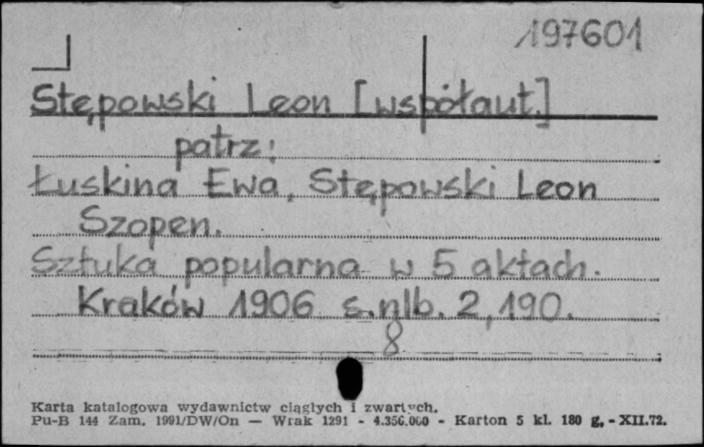 197601
Stępowski Leon [współaut.]
patrz:
Łuskina Ewa, Stępowski Leon
Szopen.
Sztuka popularna w 5 aktach.
Kraków 1906 s.nlb. 2, 190.
8
Karta katalogowa wydawnictw ciągłych i zwartych.
Pu-B 144 Zam. 1991/DW/On — Wrak 1291 - 4.356.000 - Karton 5 kl. 180 g. - XII.72.